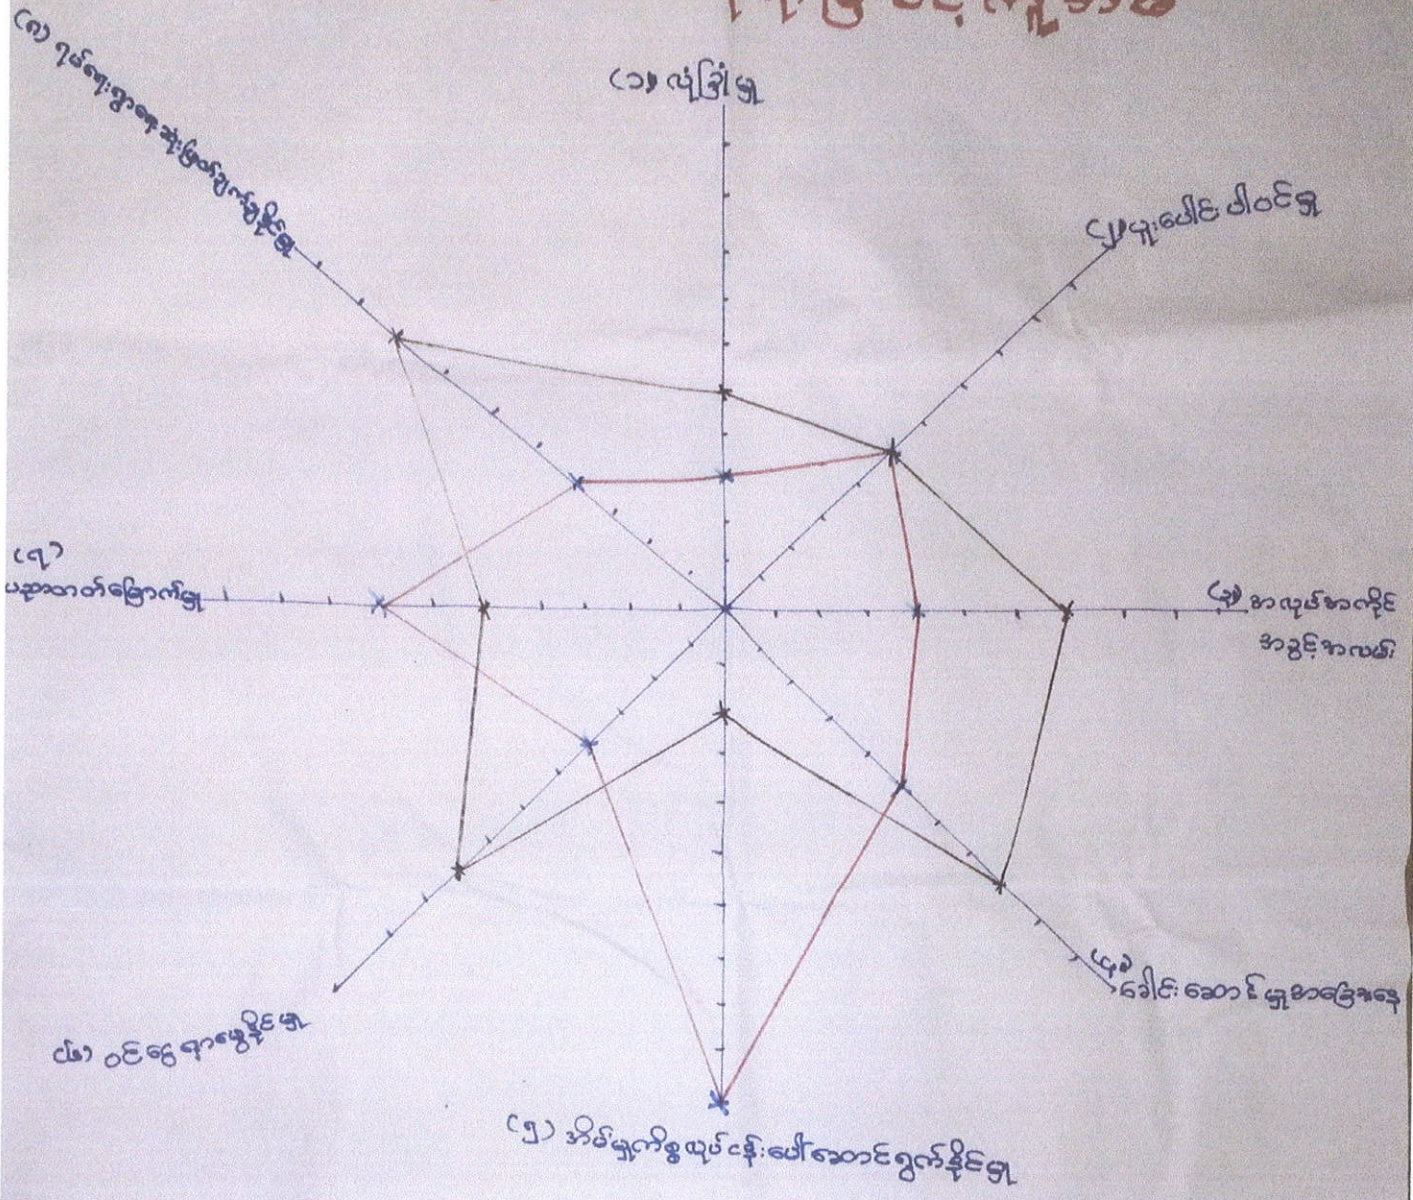 (၁) လုံခြုံမှု
(၂) ပူးပေါင်းပါဝင်မှု
(၃) အလုပ်အကိုင်
အခွင့်အလမ်း
(၄)
ခေါင်းဆောင်မှုအခြေအနေ
(၅) အိမ်မှုကိစ္စလုပ်ငန်းပေါ်ဆောင်ရွက်နိုင်မှု
(၆) ဝင်ငွေရှာဖွေနိုင်မှု
(၇)
ပညာတတ်မြောက်မှု
(၈) ရပ်ရေးရွာရေးဆုံးဖြတ်ချက်ချနိုင်မှု